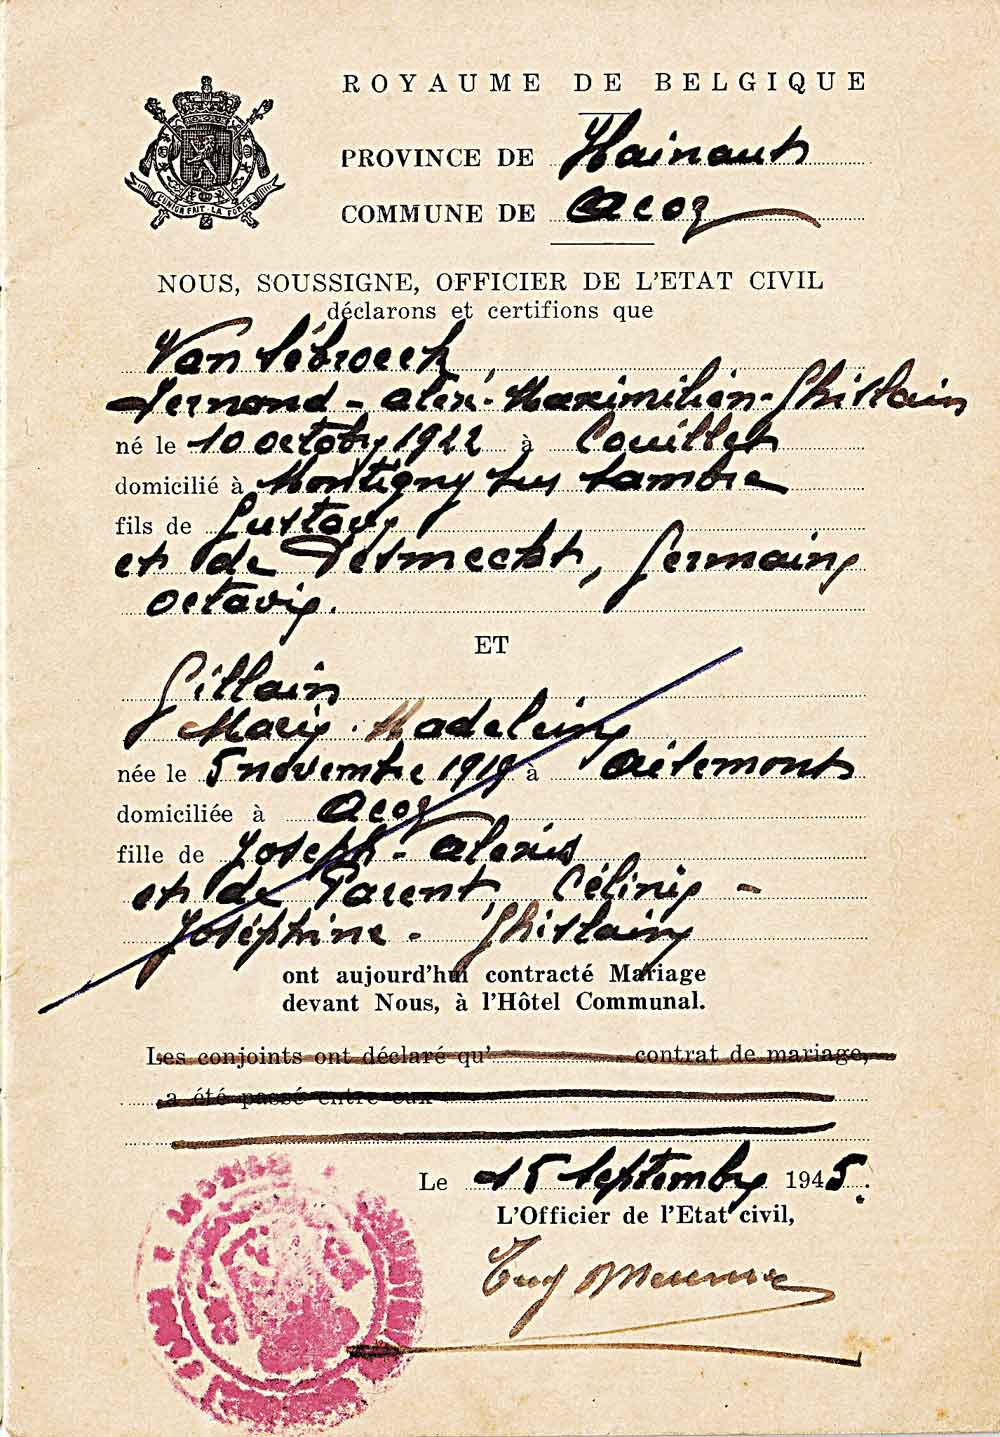 ROYAUME DE BELGIQUE
PROVINCE DE Hainaut
COMMUNE DE Acoz
L'UNION FAIT LA FORCE
NOUS, SOUSSIGNE, OFFICIER DE L'ETAT CIVIL
déclarons et certifions que
Van Sébroeck
Fernand - Alexi - Maximilien - Ghislain
né le 10 octobre 1922 à Couillet
domicilié à Montigny sur Sambre
fils de Gustave
et de Desmecht, Germaine
Octavie.
ET
Gillain
Marie Madeleine
née le 5 novembre 1919 à
domiciliée à Acoz
fille de Joseph - Alexis
et de Parent Célinie -
Joséphine - Ghislaine
ont aujourd'hui contracté Mariage
devant Nous, à l'Hôtel Communal.
Les conjoints ont déclaré qu' contrat de mariage,
a été passé entre eux
Le 15 Septembre 1945.
L'Officier de l'Etat civil,